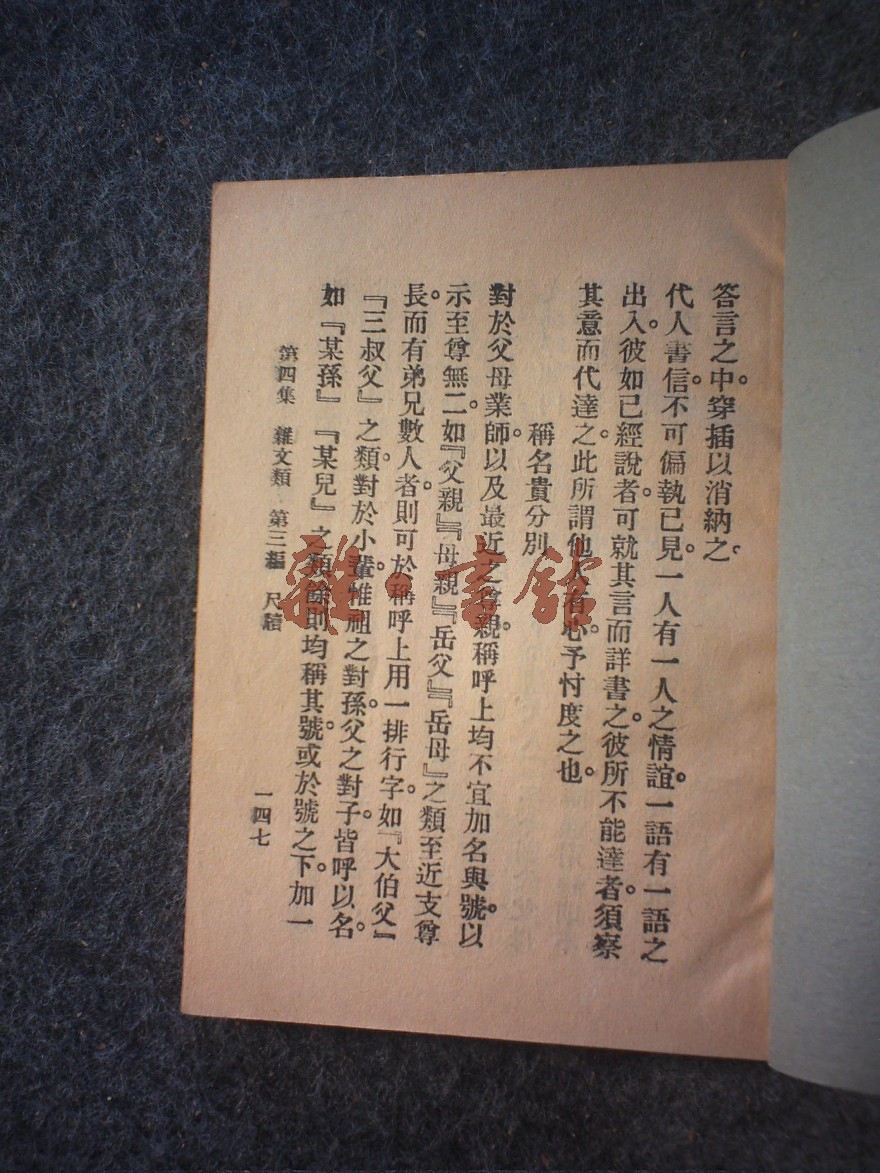 答言之中。穿插以消納之。
代人書信。不可偏執己見。一人有一人之情誼。一語有一語之
出入。彼如已經說者。可就其言而詳書之。彼所不能達者。須察
其意而代達之。此所謂他人有心。予忖度之也。
稱名貴分別
對於父母業師。以及最近之尊親。稱呼上均不宜加名與號。以
示至尊無二。如『父親』『母親』『岳父』『岳母』之類。至近支尊
長。而有弟兄數人者。則可於稱呼上用一排行字。如『大伯父』
『三叔父』之類。對於小輩。惟祖之對孫。父之對子。皆呼以名。
如『某孫』『某兒』之類。餘則均稱其號。或於號之下。加一
第四集 雜文類 第三編 尺牘
一四七
雜·書館